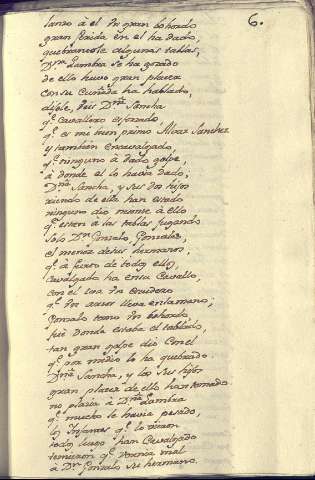 6.
lanzo á el Un gran bohordo
gran Caida en el ha dado,
quebrancole algunas tablas,
Dña Lambra se ha gozado
de ello huvo gran placer
con su Cuñada ha hablado,
dijole, Veis Dña Sancha
q.e Cavallero esforzado,
q.e es mi buen primo Alvar Sanchez
y tambien encavalgado,
q.e ninguno á dado golpe,
á donde el lo havia dado;
Dña Sancha, y sus dos hijos
riendo de ello han estado
ninguno dio miente á ello
q.e estan á las tablas jugando
solo Dn Gonzalo Gonzalez,
el menor de sus hermanos,
q.e á furto de todos ellos,
cavalgado ha en su Cavallo,
con el iva Un Escudero
q.e Un azor lleva en la mano;
Gonzalo tomo Un bohordo,
fué donde estaba el tablado,
tan gran golpe dió con el
q.e por medio lo ha quebrado.
Dña Sancha, y los sus hijos
gran placer de ello han tomado
no plazia á Dña Lambra
q.e mucho le havia pesado,
los Infantes q.e lo vieron
todos luego han Cavalgado
temieron q.e vernia mal
á Dn Gonzalo su hermano.